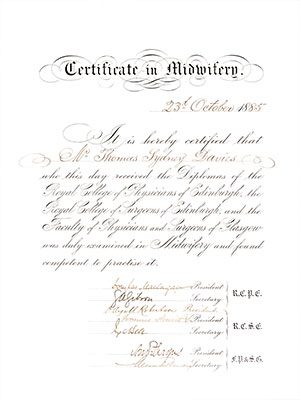 Certificate in Midwifery.
23d October 1885
It is hereby certified that
Mr. Thomas Sydney Davies
who this day received the Diplomas of the
Royal College of Physicians of Edinburgh, the
Royal College of Surgeons of Edinburgh, and the
Faculty of Physicians and Surgeons of Glasgow
was duly examined in Midwifery and found
competent to practise it.
President
Secretary R.C.P.E.
Robertson President
President
Secretary R.C.S.E.
President
Secretary F.P.&S.G.